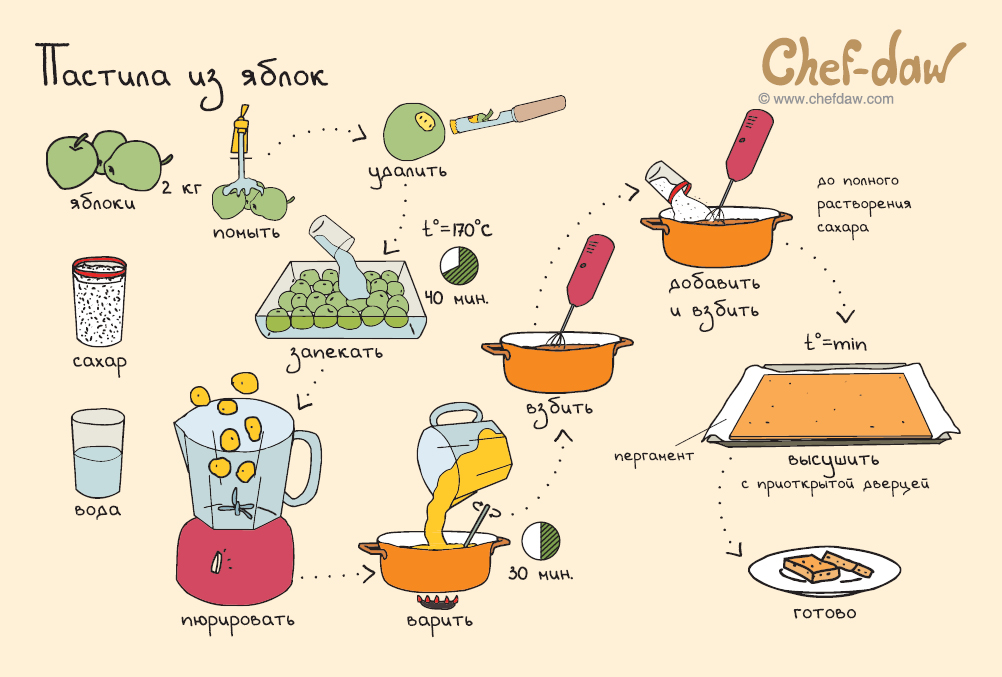 Пастила из яблок
Chef-daw
© www.chefdaw.com
яблоки
2 кг
помыть
удалить
сахар
вода
t°=170°C
40 мин.
запекать
пюрировать
варить
30 мин.
взбить
добавить
и взбить
до полного
растворения
сахара
t°=min
пергамент
высушить
с приоткрытой дверцей
готово